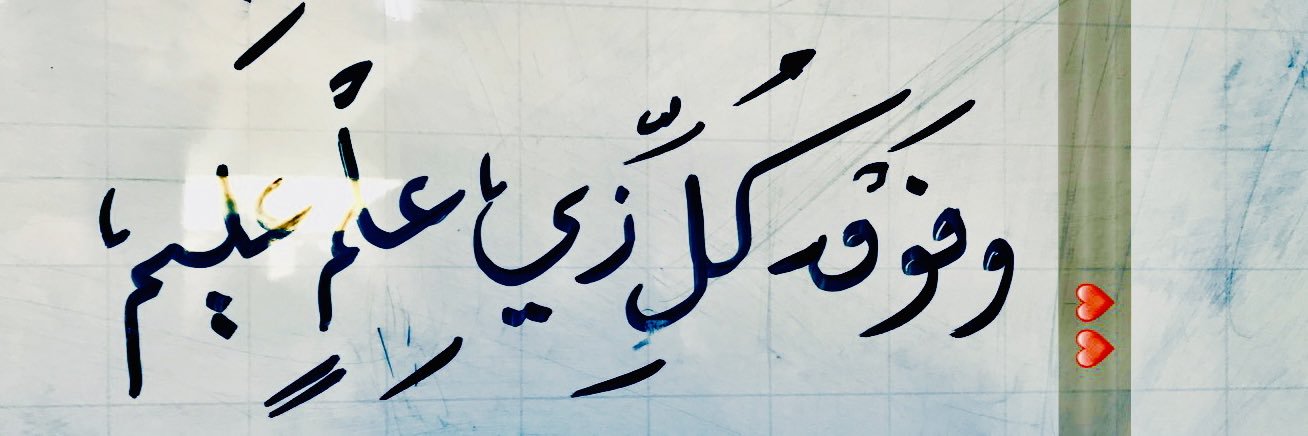 وفَوْقَ كُلِّ ذِي عِلْمٍ عَليم